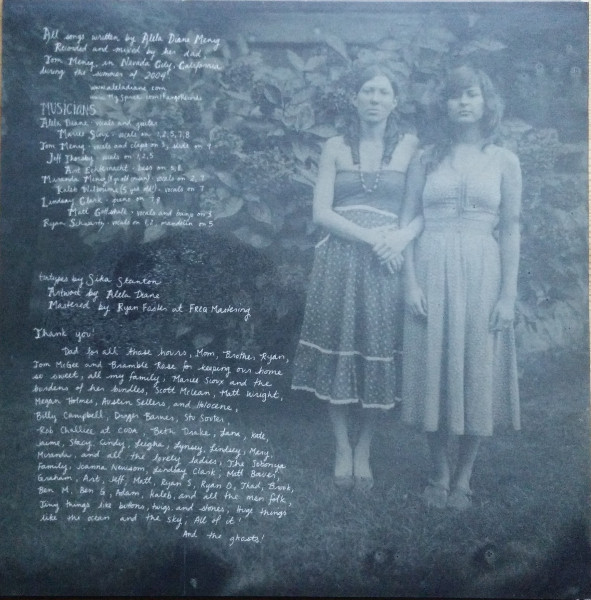 All songs written by Alela Diane Menig
Recorded and mixed by her dad
Tom Menig, in Nevada City, California
during the summer of 2004.
www.aleladiane.com
MUSICIANS
Alela Diane - vocals and guitar
Mariee Sioux - vocals on 1, 2, 5, 7, 8
Tom Menig - vocals and claps on 3, slide on 9
Jeff Hornby - vocals on 1, 2, 5
bass on
vocals on 2, 3
vocals on 7
Lindsay Clark - piano on 7, 9
Matt Gottschalk - vocals and banjo on 3
Ryan Schwartz - vocals on mandolin on 5
tintypes by Sika Stanton
Artwork by Alela Diane
Mastered by Ryan Foster at FREQ Mastering
Thank you!
Dad for all those hours, Mom, Brother Ryan,
Tom McGee and Bramble Rose for keeping our home
so sweet, all my family, Mariee Sioux and the
burdens of her bundles, Scott McLean, Matt Wright,
Megan Holmes, Austin Sellers, and Holocene,
Billy Campbell, Dugger Barnes, Stu Souter,
Rob Challice at CODA, Beth Drake, Lara, Kate,
Jaime, Stacy, Cindy, Leigha, Lynsey, Lindsey, Mary,
Miranda, and all the lovely ladies, The
Family, Joanna Newsom, Lindsay Clark, Matt Bauer,
Graham, Art, Jeff, Matt, Ryan S, Ryan D, Thad, Brook,
Ben M, Ben G, Adam, Kaleb, and all the men folk,
Tiny things like buttons, twigs, and stones, Huge things
like the ocean and the sky, All of it!
And the ghosts!